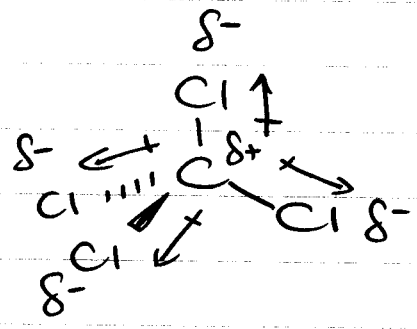 δ-
Cl
δ-
C δ+
Cl
Cl δ-
Cl
δ-